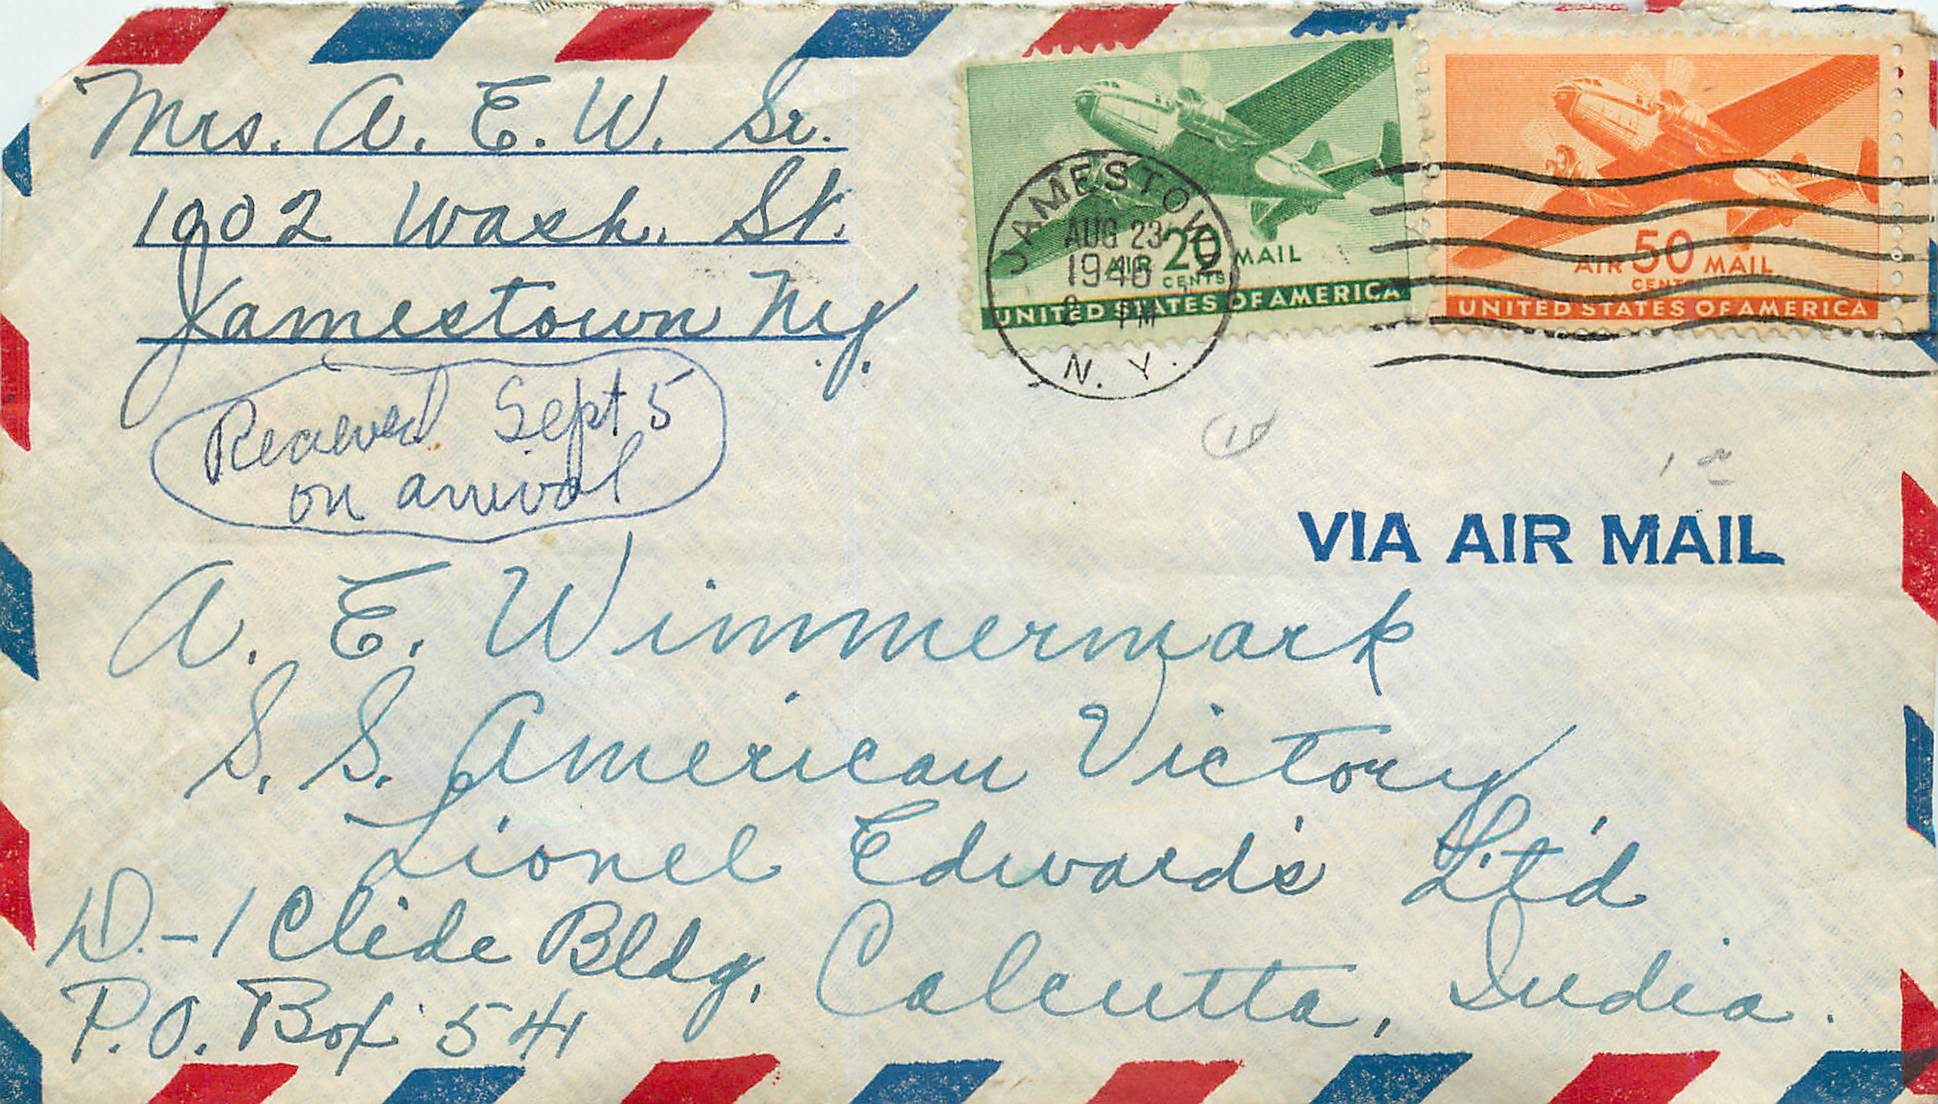 Mrs. A. E. W. Sr.
1902 Wash. St.
Jamestown N.Y.
Received Sept 5
on arrival
JAMESTOWN
AUG 23
1946
PM
N. Y.
AIR 20 MAIL
CENTS
UNITED STATES OF AMERICA
AIR 50 MAIL
CENTS
UNITED STATES OF AMERICA
VIA AIR MAIL
A. E. Wimmermark
S. S. American Victory
Lionel Edward's Lt'd
D.-1 Clide Bldg, Calcutta, India.
P.O. Box 541